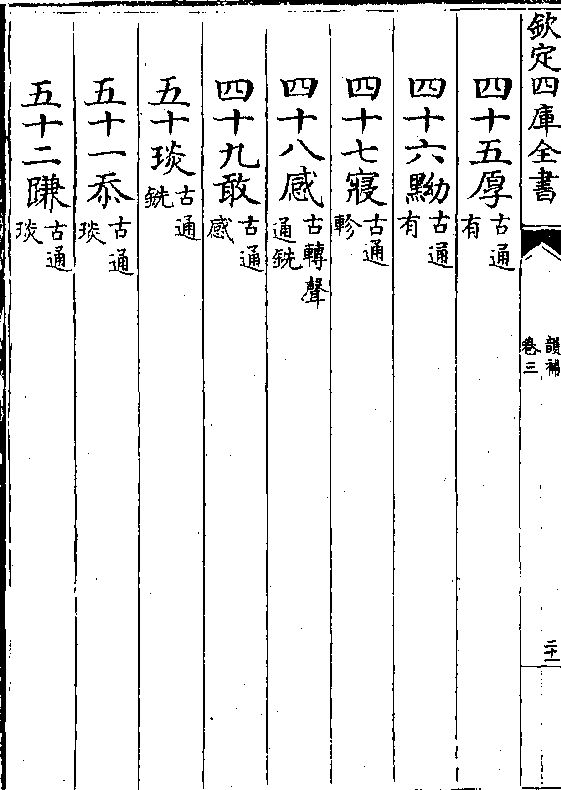 欽定四庫全書
韻補
卷三
二十一
四十五厚古通有
四十六黝古通有
四十七寑古通軫
四十八感古轉聲通銑
四十九敢古通感
五十琰古通銑
五十一忝古通琰
五十二豏古通琰